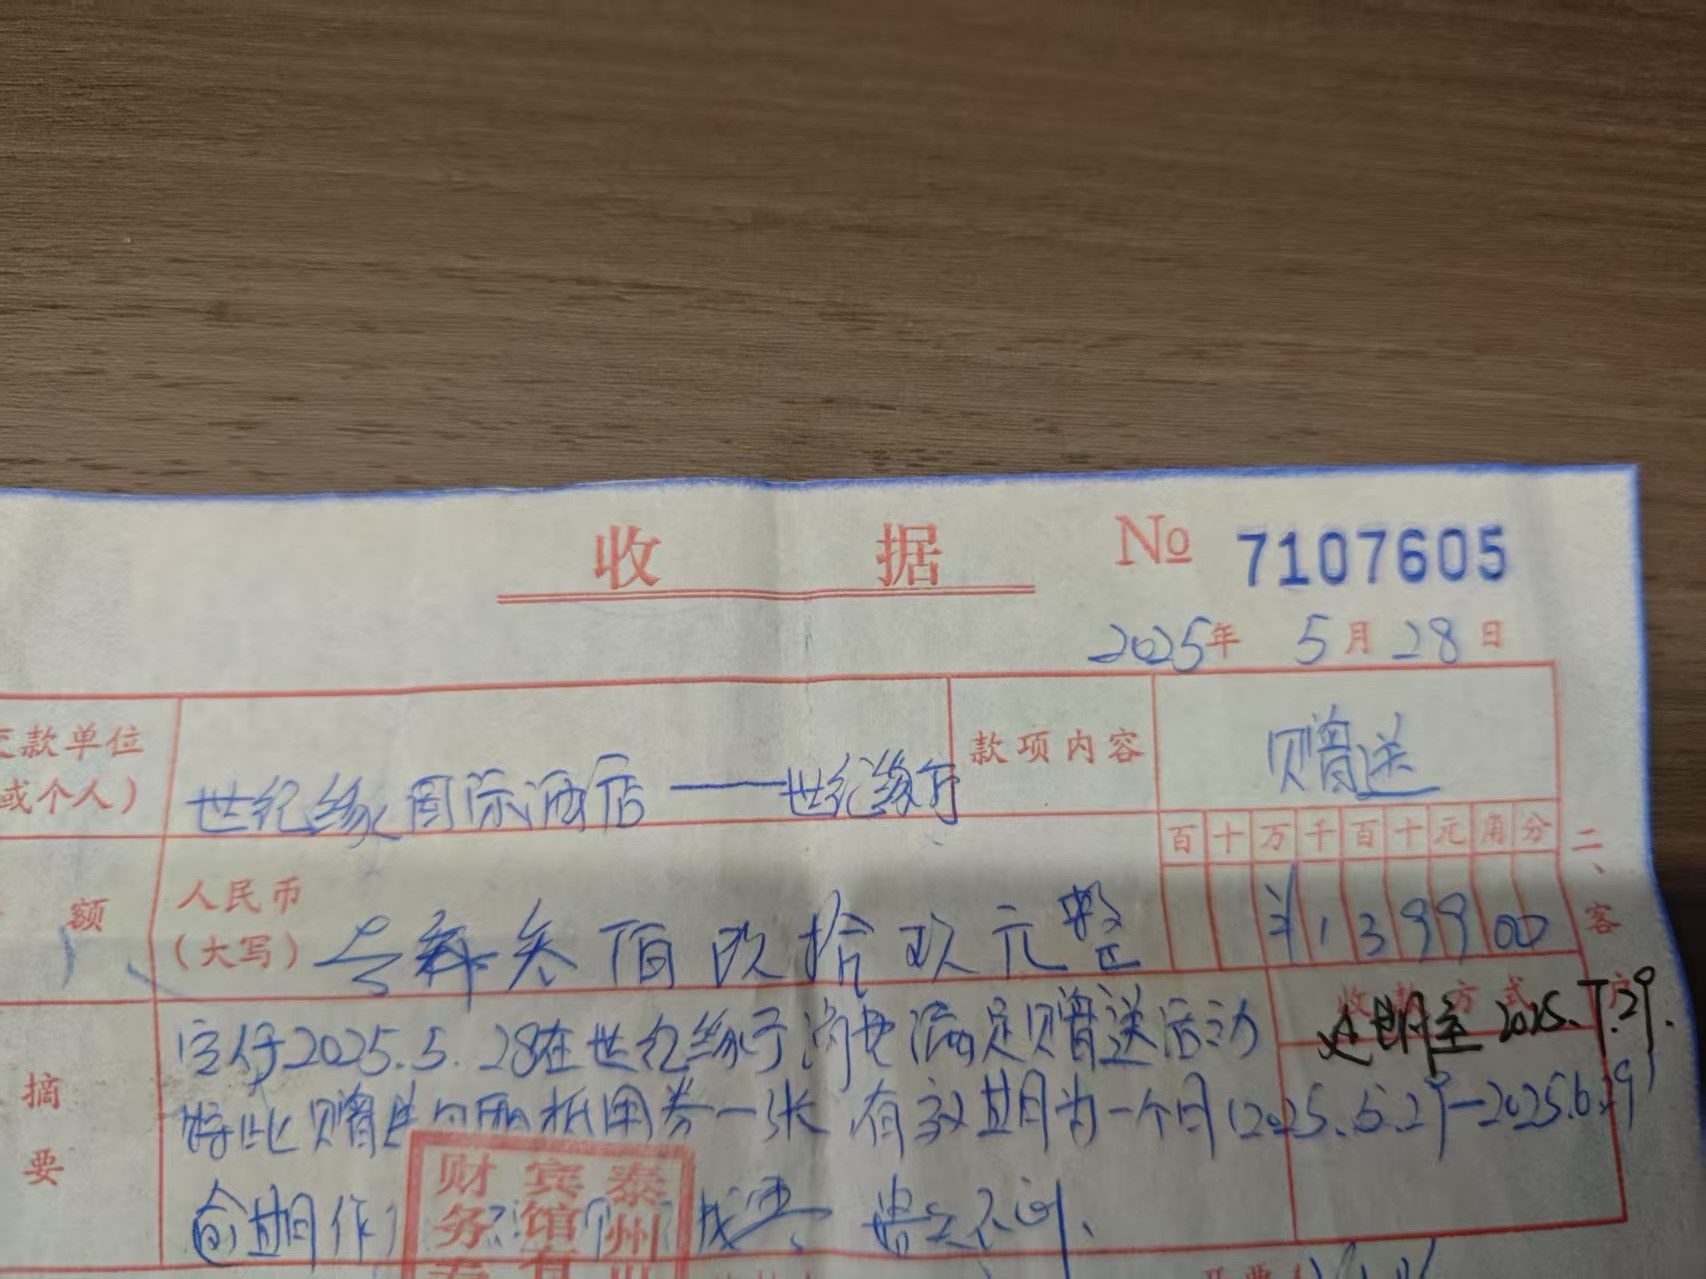 收 据 № 7107605
2025年 5月 28日
交款单位
(或个人)
世纪缘国际酒店——世纪缘厅
款项内容
赠送
百 十 万 千 百 十 元 角 分
额
人民币
(大写)
叁佰玖拾玖元整
¥ 1 3 9 9 0 0
二、客户
摘要
2025.5.28在世纪缘厅消费满足赠送活动
收款方式
延期至 2025.7.29.
特此赠送 抵用券一张 有效期为一个月(2025.5.29—2025.6.29
逾期作
财务专
宾馆有
泰州